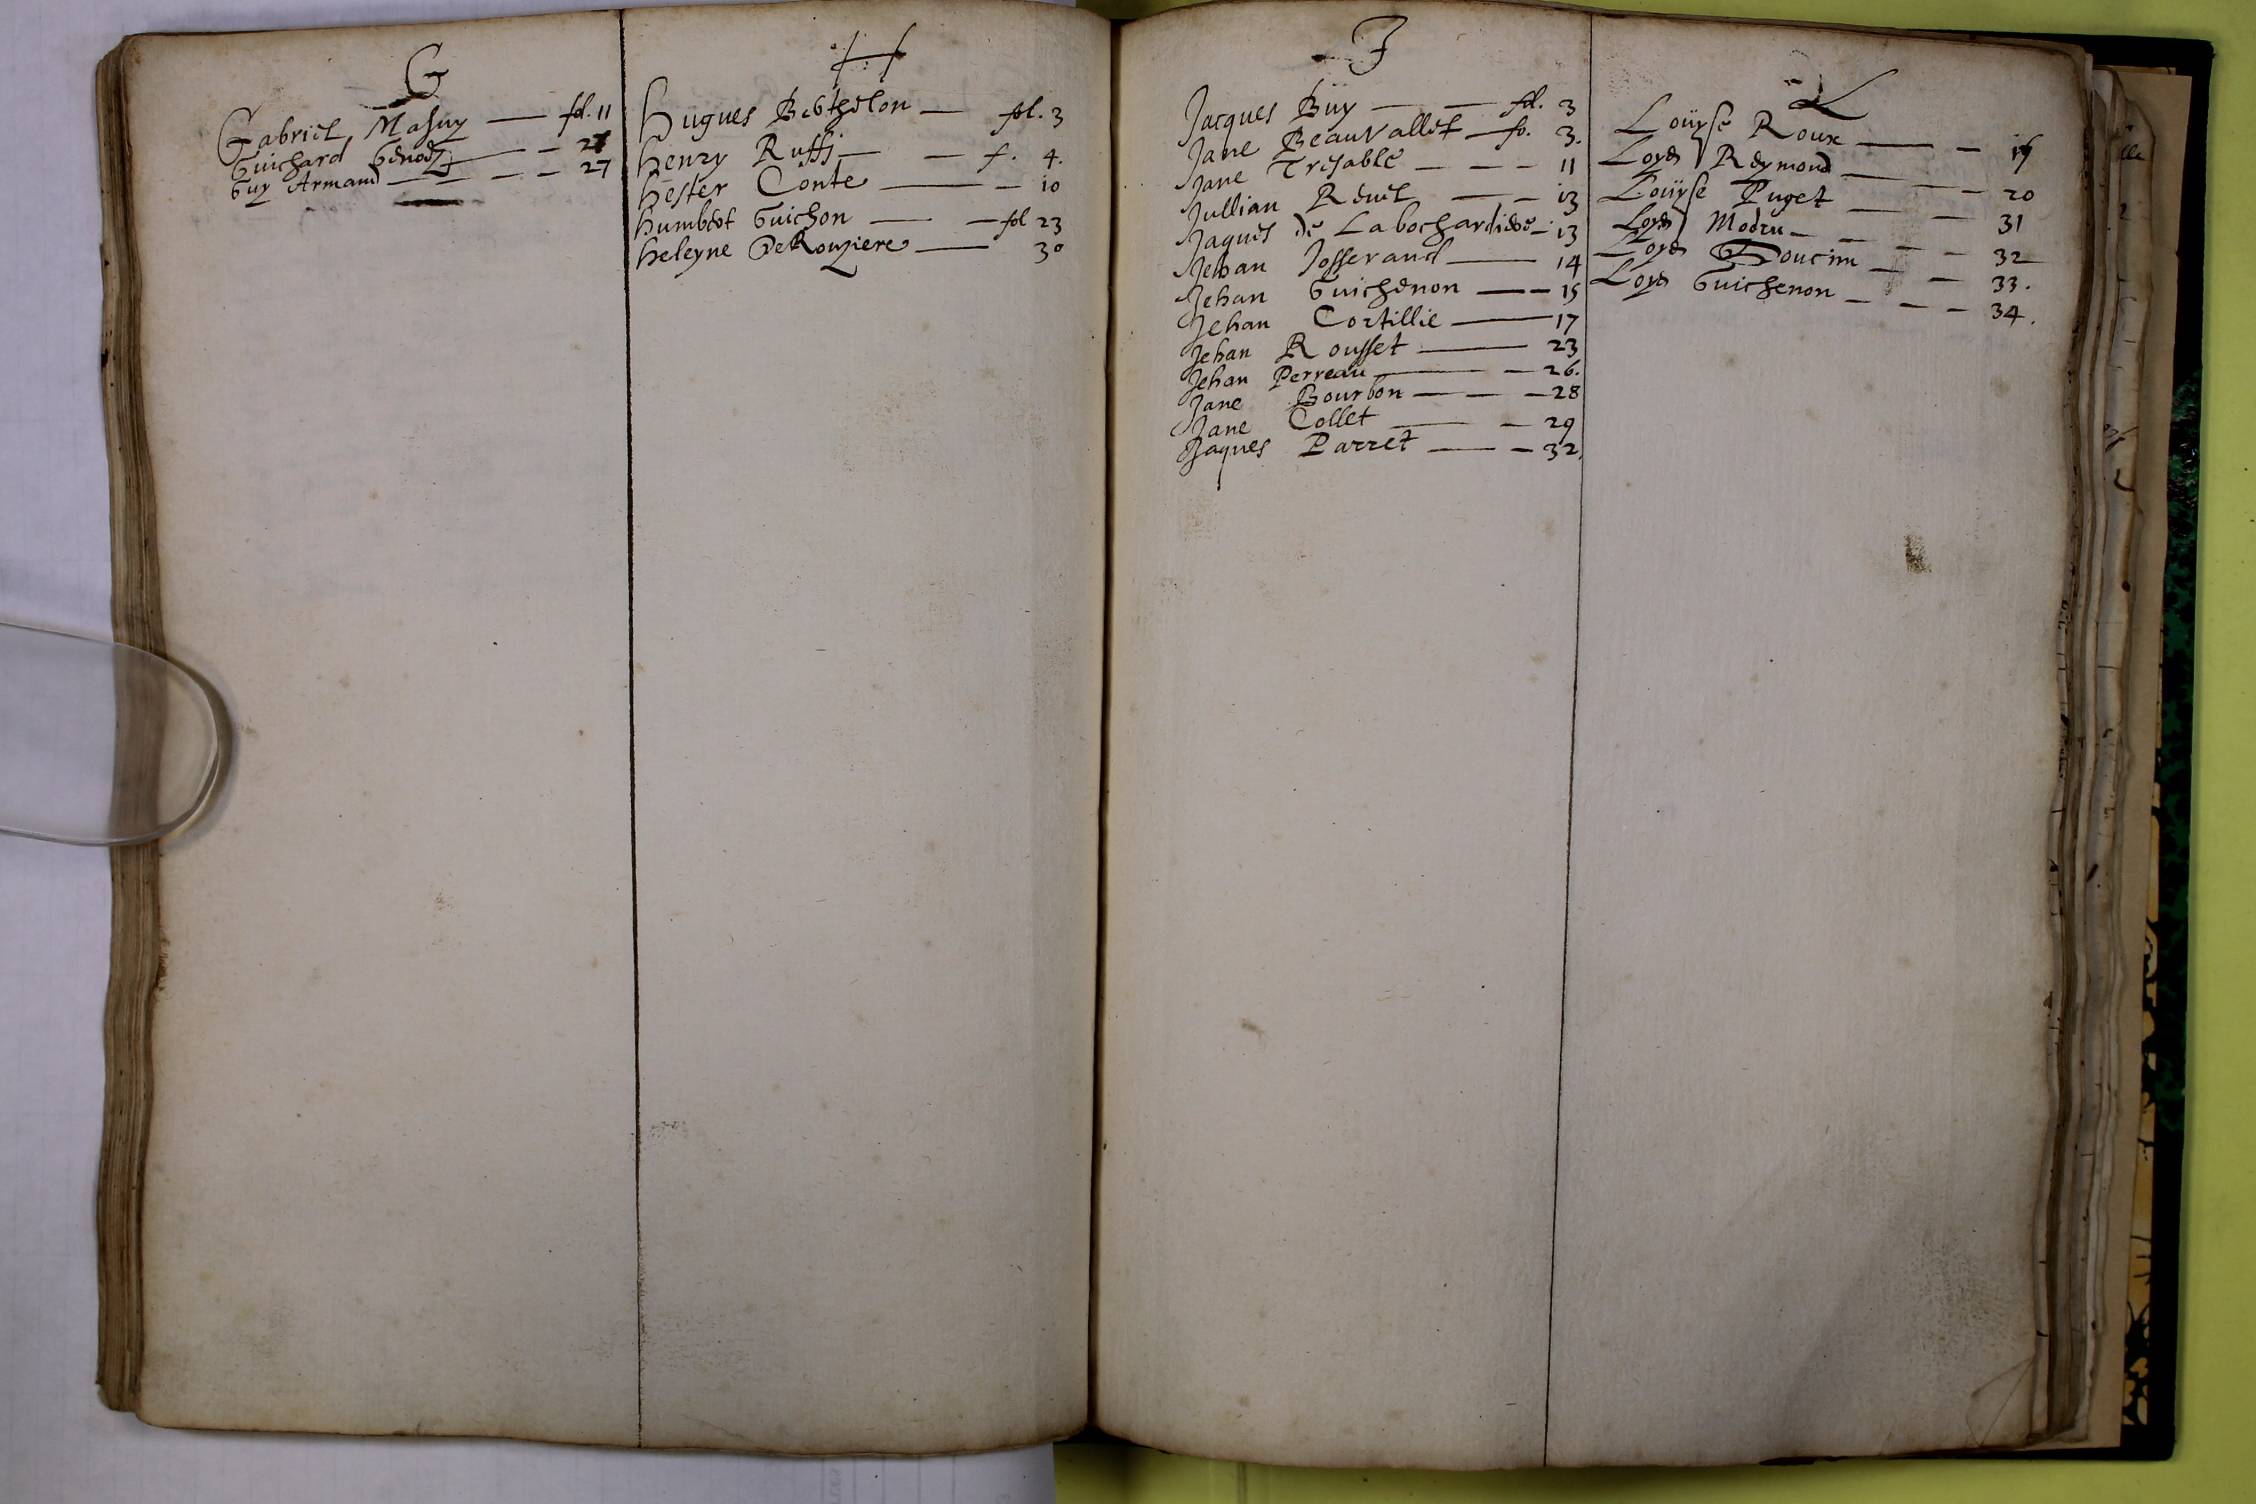 G
Gabriel Mahuy — fol. 11
Guichard Genod — 27
Guy Armand — — — — 27
H
Hugues Berthelon — fol. 3
Henry Ruffi — — f. 4.
Hester Conte — — 10
Humbert Guichon — — fol 23
Heleyne DeRouziere — 30
J
Jacques Büy — — fol. 3
Jane Beauvallet — fo. 3.
Jane Tresable — — — 11
Jullian Revel — — 13
Jaques de Labochardiere — 13
Jehan Josserand — 14
Jehan Guichenon — — 15
Jehan Cortillie — 17
Jehan Rousset — 23
Jehan Perreau — — 26.
Jane Bourbon — — — 28
Jane Collet — — 29
Jaques Parret — — 32.
L
Loüyse Roux — —
Loys Reymond — — — 20
Loüyse Puget — — 31
Loys — — — 32
Loys — — 33.
Loys Guichenon — — — 34.